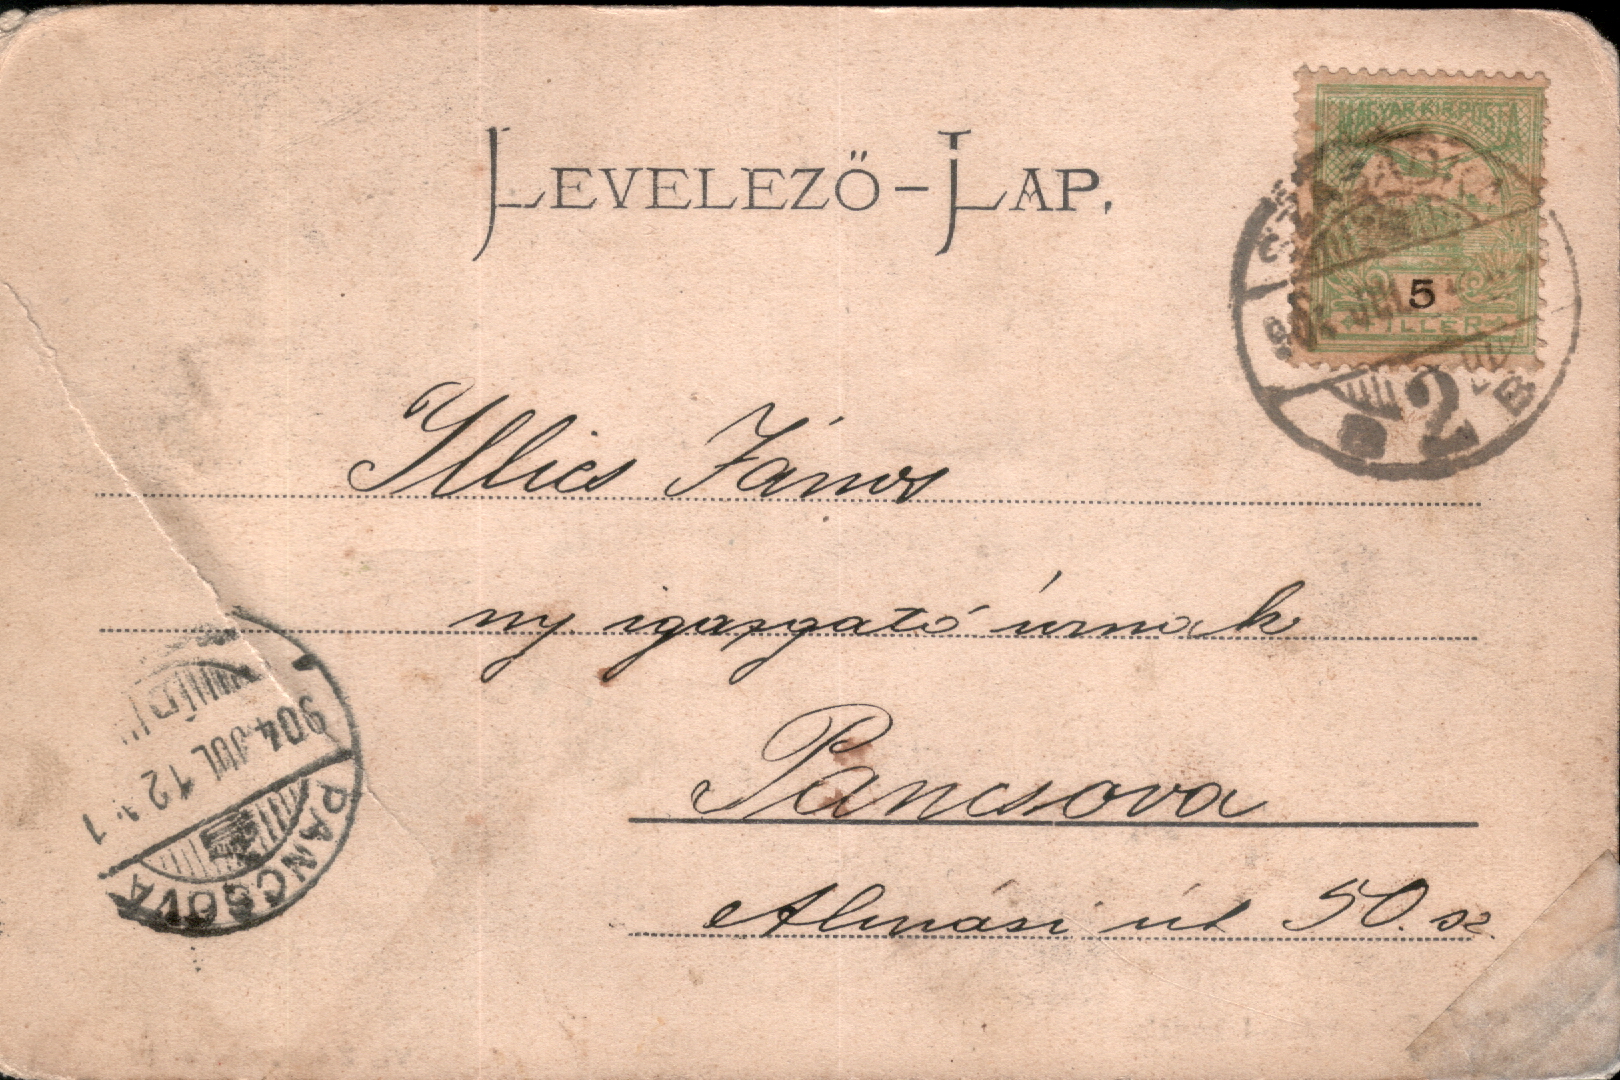 LEVELEZŐ-LAP.
MAGYAR KIR. POSTA
5
FILLÉR
2
B
Illics János
ny. igazgató úrnak
Pancsova
Almási út 50. sz.
904 JUL 12
PANCSOVA